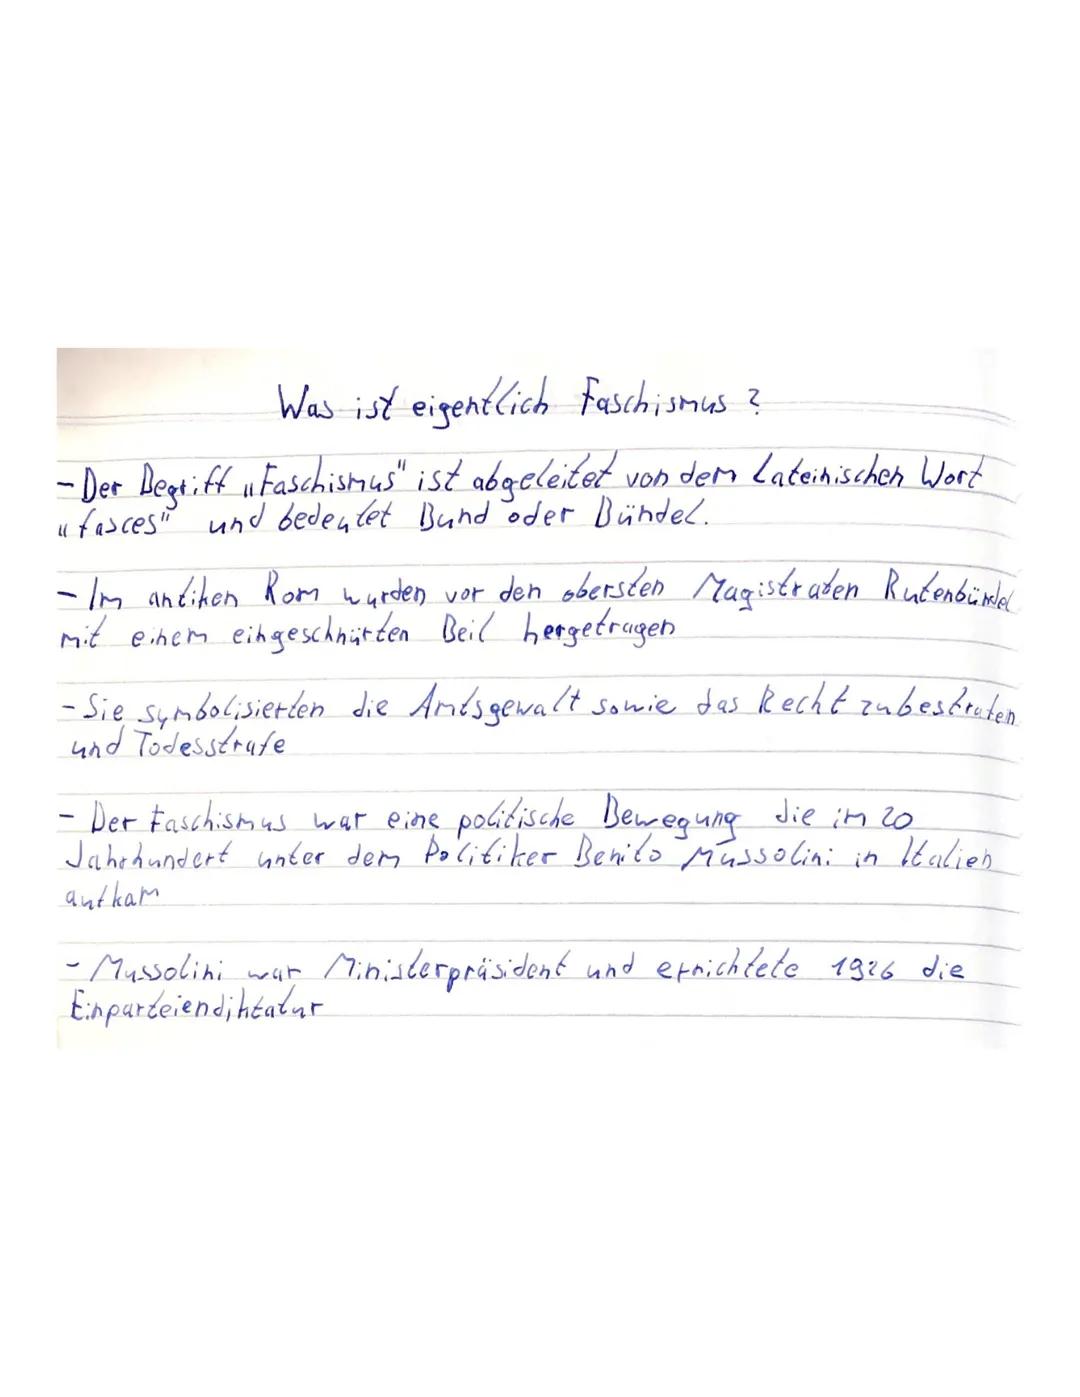 Was ist eigentlich Faschismus?
- Der Begriff „Faschismus" ist abgeleitet von dem Lateinischen Wort
„fasces" und bedeutet Bund oder Bündel.
- Im antiken Rom wurden vor den obersten Magistraten Rutenbündel
mit einem eingeschnürten Beil hergetragen
- Sie symbolisierten die Amtsgewalt sowie das Recht zubestrafen
und Todesstrafe
- Der Faschismus war eine politische Bewegung die im 20
Jahrhundert unter dem Politiker Benito Mussolini in Italien
aufkam
- Mussolini war Ministerpräsident und errichtete 1926 die
Einparteiendiktatur